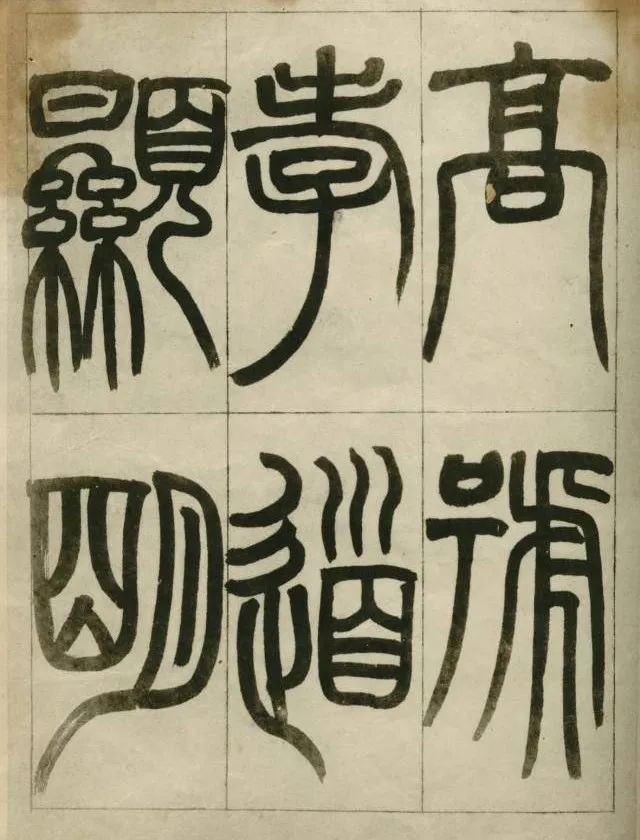 高號
孝道
顯明